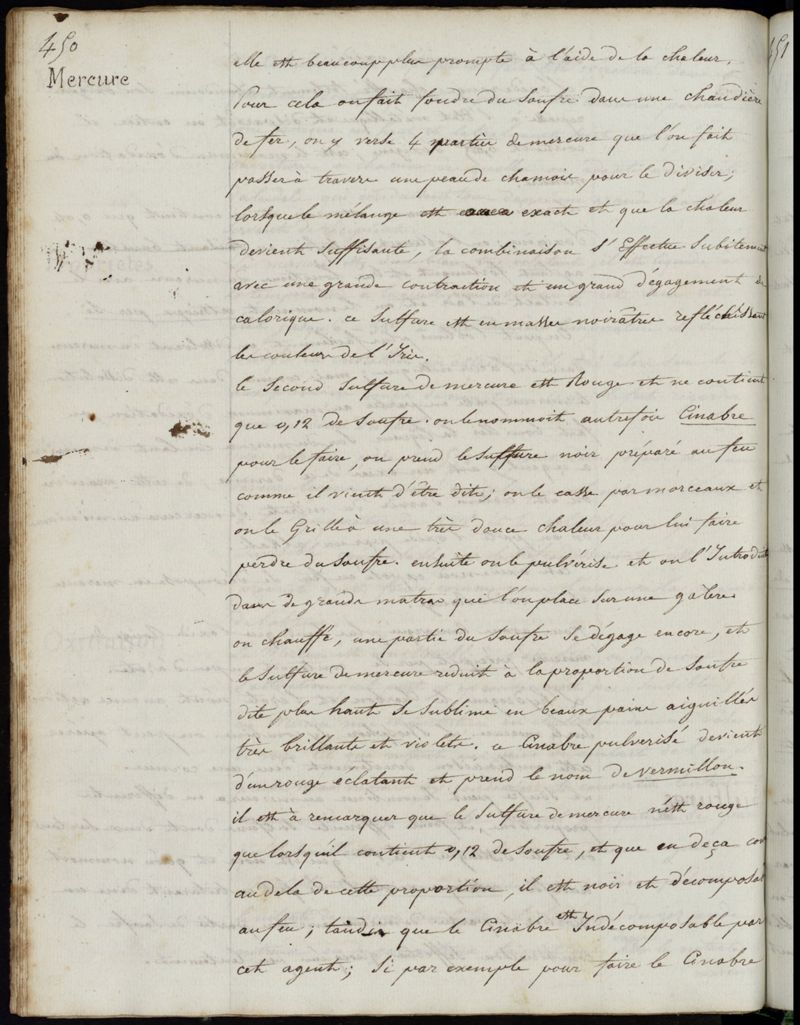 450
Mercure
elle est beaucoup plus prompte à l'aide de la chaleur.
Pour cela on fait fondre du Soufre dans une chaudière
de fer, on y verse 4 parties de mercure que l'on fait
passer à travers une peau de chamois pour le diviser;
lorsque le mélange est exact et que la chaleur
devient Suffisante, la combinaison S'Effectue Subitement
avec une grande contraction et un grand dégagement de
calorique. ce Sulfure est en masses noirâtres refléchissant
les couleurs de l'Iris.
le Second Sulfure de mercure est Rouge et ne contient
que 0,12 de Soufre. on le nommoit autrefois Cinabre
pour le faire, on prend le Sulfure noir préparé au feu
comme il vient d'être dit; on le casse par morceaux et
on le Grille à une très douce chaleur pour lui faire
perdre du Soufre. ensuite on le pulvérise et on l'Introduit
dans de grands matras que l'on place Sur une galère
on chauffe, une partie du Soufre Se dégage encore, et
le Sulfure de mercure reduit à la proportion de Soufre
dite plus haut Se Sublime en beaux pains aiguillés
très brillants et violets. ce Cinabre pulverisé devient
d'un rouge éclatant et prend le nom de Vermillon.
il est à remarquer que le Sulfure de mercure n'est rouge
que lorsqu'il contient 0,12 de Soufre, et que en deça ou
au dela de cette proportion, il est noir et décomposable
au feu; tandis que le Cinabre est Indécomposable par
cet agent; Si par exemple pour faire le Cinabre
451